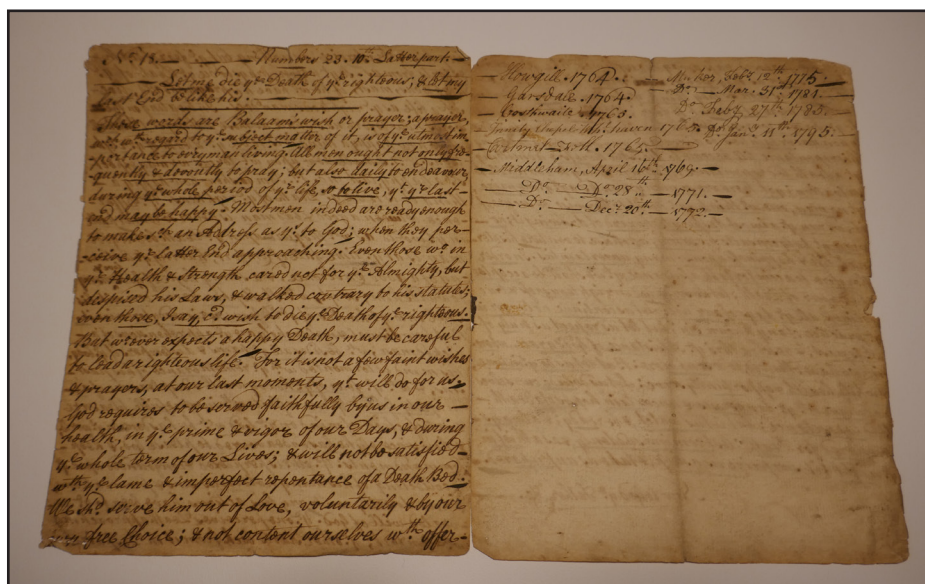 No. 18. — Numbers 23. 10th. Latter part. —
Let me die ye Death of ye righteous, & let my
last End be like his.
These words are Balaam's wish or prayer; a prayer,
wch wth regard to ye subject matter of it, is of ye utmost im-
portance to every man living. All men ought not only fre-
quently & devoutly to pray; but also daily to endeavour,
during ye whole period of ye life, so to live, yt ye last
end may be happy. Most men indeed are ready enough
to make such an Address as yt to God; when they per-
ceive ye latter End approaching. Even those wo in
ye Health & Strength, cared not for ye Almighty, but
despised his Laws, & walked contrary to his statutes;
even those, I say, cd wish to die ye Death of ye righteous.
But wever expects a happy Death, must be careful
to lead a righteous life. For it is not a few faint wishes
& prayers, at our last moments, yt will do for us.
God requires to be served faithfully by us in our —
health, in ye prime & vigor of our Days, & during
ye whole term of our Lives; & will not be satisfied —
wth ye lame & imperfect repentance of a Death Bed.
We shd serve him out of Love, voluntarily & by our
own free Choice; & not content ourselves wth offer-
Howgill. 1764.
Garsdale. 1764.
Gosthwaite 1765.
Trinity Chapel Whitehaven 1765.
Cartmel 1765.
Middleham, April 16th. 1769.
Do. — Do. 28th — 1771.
Do. — Decr. 20th. — 1792.
Feby. 12th. 1775.
Do. Mar. 31st. 1781.
Do. Feby. 27th. 1785.
Do. Jany. 11th. 1795.